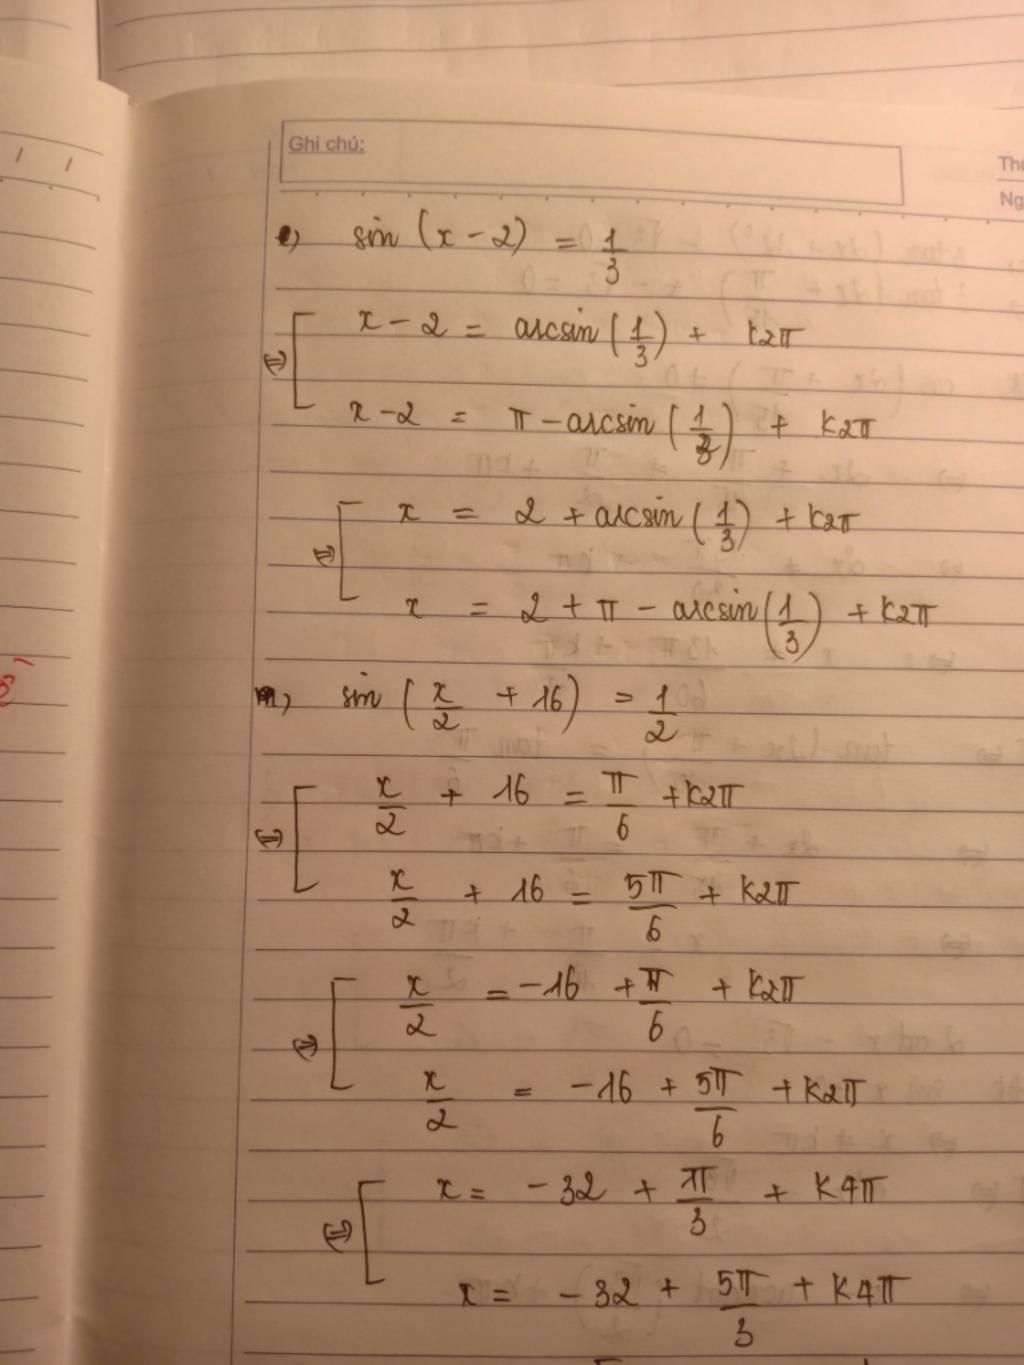 Ghi chú:
Thứ
Ng
e, sin (x - 2) = 1/3
⇔ [ x - 2 = arcsin (1/3) + k2π
x - 2 = π - arcsin (1/3) + k2π
⇔ [ x = 2 + arcsin (1/3) + k2π
x = 2 + π - arcsin (1/3) + k2π
m, sin (x/2 + 16) = 1/2
⇔ [ x/2 + 16 = π/6 + k2π
x/2 + 16 = 5π/6 + k2π
⇔ [ x/2 = -16 + π/6 + k2π
x/2 = -16 + 5π/6 + k2π
⇔ [ x = -32 + π/3 + k4π
x = -32 + 5π/3 + k4π